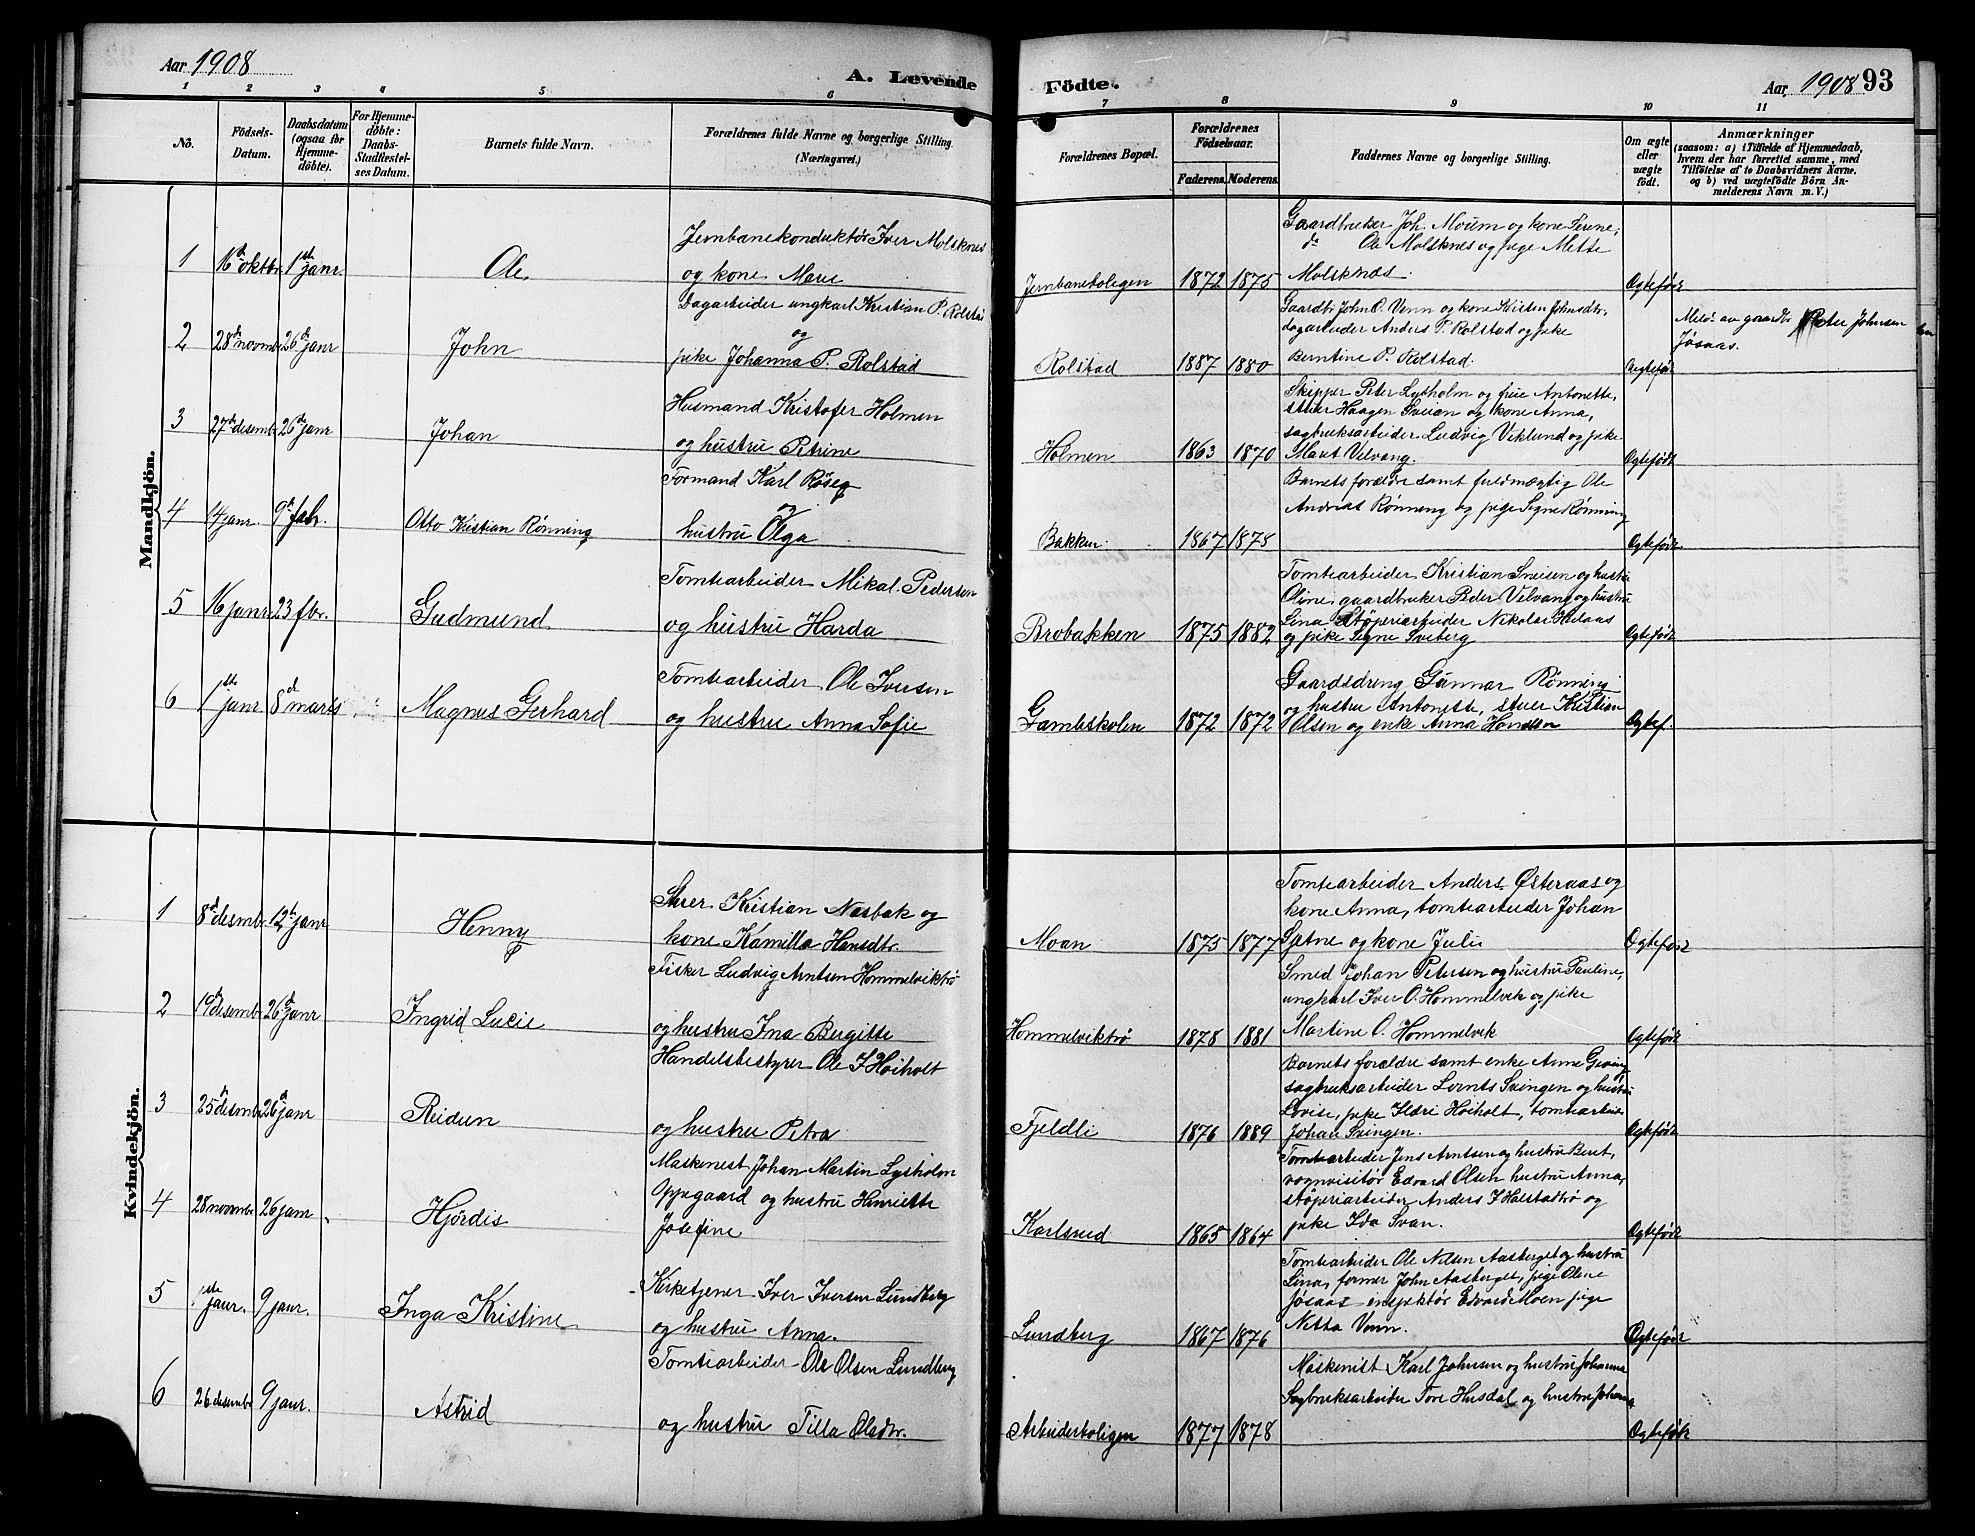 Aar 1908
A. Levende
Födte.
Aar 1908 93
1 2 3 4 5 6 7 8 9 10 11
No.
Födsels-
Datum.
Daabsdatum
(ogsaa för
Hjemme-
döbte).
For Hjemme-
döbte:
Daabs-
Stadfæstel-
ses Datum.
Barnets fulde Navn.
Forældrenes fulde Navne og borgerlige Stilling.
(Næringsvei.)
Forældrenes Bopæl.
Forældrenes
Födselsaar.
Faderens. Moderens.
Faddernes Navne og borgerlige Stilling.
Om ægte
eller
uægte
født.
Anmærkninger
(saasom: a) i Tilfælde af Hjemmedaab,
hvem der har forrettet samme, med
Tilföielse af to Daabsvidners Navne.
og b) ved uægtefödte Börn An-
melderens Navn m. V.)
Mandkjön.
1 16de oktbr. 1ste janr. Ole
Jernbanekonduktör Iver Molsknes
og kone Marie
Jernbaneboligen 1872 1875
Gaardbruker Joh. Moum og kone Serene,
do Ole Molsknes og pige Mette
Molsknæs.
Ogtefödt
2 28de novmbr 26de janr John
Dagarbeider ungkarl Kristian P. Rolstad
og
pike Johanna P. Rolstad
Rolstad 1887 1880
Gaardbr John O. Venn og kone Kirsten Johnsdtr,
dagarbeider Anders P. Rolstad og pike
Berntine P. Rolstad.
Uegtefödt
Meld. av gaardbr Peter Johnsen
Jösaas.
3 27de desembr 26de janr Johan
Husmand Kristofer Holmen
og hustru Petrine
Holmen 1863 1870
Skipper Peter Lysholm og frue Antonette,
stuer Haagen Sveian og kone Anna,
sagbruksarbeider Ludvig Viklund og pike
Marit Velvang.
Ogtefödt
4 14 janr. 9de febr. Otto Kristian Rønning
Formand Karl Röseg
og
hustru Olga
Bakken 1867 1878
Barnets forældre samt fuldmægtig Ole
Andreas Rønning og pige Signe Rønning
Ogtefödt
5 16 janr 23 fbr. Gudmund
Tomtearbeider Mikal Pedersen
og hustru Harda
Brobakken 1875 1882
Tomtearbeider Kristian Sneisen og hustru
Oline, gaardbruker Peder Velvang og hustru
Lina Stöperiarbeider Nikolai Hilaas
og pike Signe Sveberg
Ogtefödt
6 1ste janr 8de marts Magnus Gerhard
Tomtearbeider Ole Iversen
og hustru Anna Sofie
Gambskolen 1872 1872
Gaardsdreng Gunnar Rönning
og hustru Antonette, stuer Kristian
Olsen og enke Anna
Ogtef.
Kvindekjön.
1 8de desmbr. 12te janr Henny
Stuer Kristian Næsbak og
kone Kamilla Hansdtr.
Moan 1875 1877
Tomtearbeider Anders Østeraas og
kone Anna, tomtearbeider Johan
Sætne og kone Julie
Ogtefödt
2 19de desembr 26de janr Ingrid Lucie
Fisker Ludvig Arntsen Hommelviktrö
og hustru Ina Bergitte
Hommelviktrö 1878 1881
Smed Johan Petersen og hustru Pauline,
ungkarl Iver O. Hommelvik og pike
Martine O. Hommelvik
Ogtefödt
3 25de desmbr 26de janr Reidun
Handelsbestyrer Ole J Höiholt
og hustru Petra
Fjeldli 1876 1889
Barnets forældre samt enke Anne Geving
sagbruksarbeider Lornts Svingen og hustru
Lovise, pike Ildri Höiholt, tomtearbeider
Johan Svingen.
Ogtefödt
4 28 novembr 26 janr Hjördis
Maskenest Johan Martin Lysholm
Oppegaard og hustru Henriette
Josefine
Karlsved 1865 1864
Tomtearbeider Jens Arntsen og hustru Beret,
vognvisitör Edvard Olsen hustru Anna,
stöperiarbeider Anders J Halstadtrö og
pike Ida Svan.
Ogtefödt
5 1ste janr. 9 janr. Inga Kristine
Kirketjener Iver Iversen Lundberg
og hustru Anna.
Lundberg 1867 1876
Tomtearbeider Ole Nilsen Aasberget og hustru
Lina, former John Aasberget, pige Oline
Jösaas inspektör Edvard Moen pige
Netta Venn.
Ogtefödt
6 26 desembr 9 janr. Astrid
Tomtearbeider Ole Olsen Lundberg
og hustru Tilla Olsdtr.
Arbeiderboligen 1877 1878
Maskenist Karl Johnsen og hustru Johanna
Sagbruksarbeider Tore Husdal og hustru Johanna
Ogtefödt